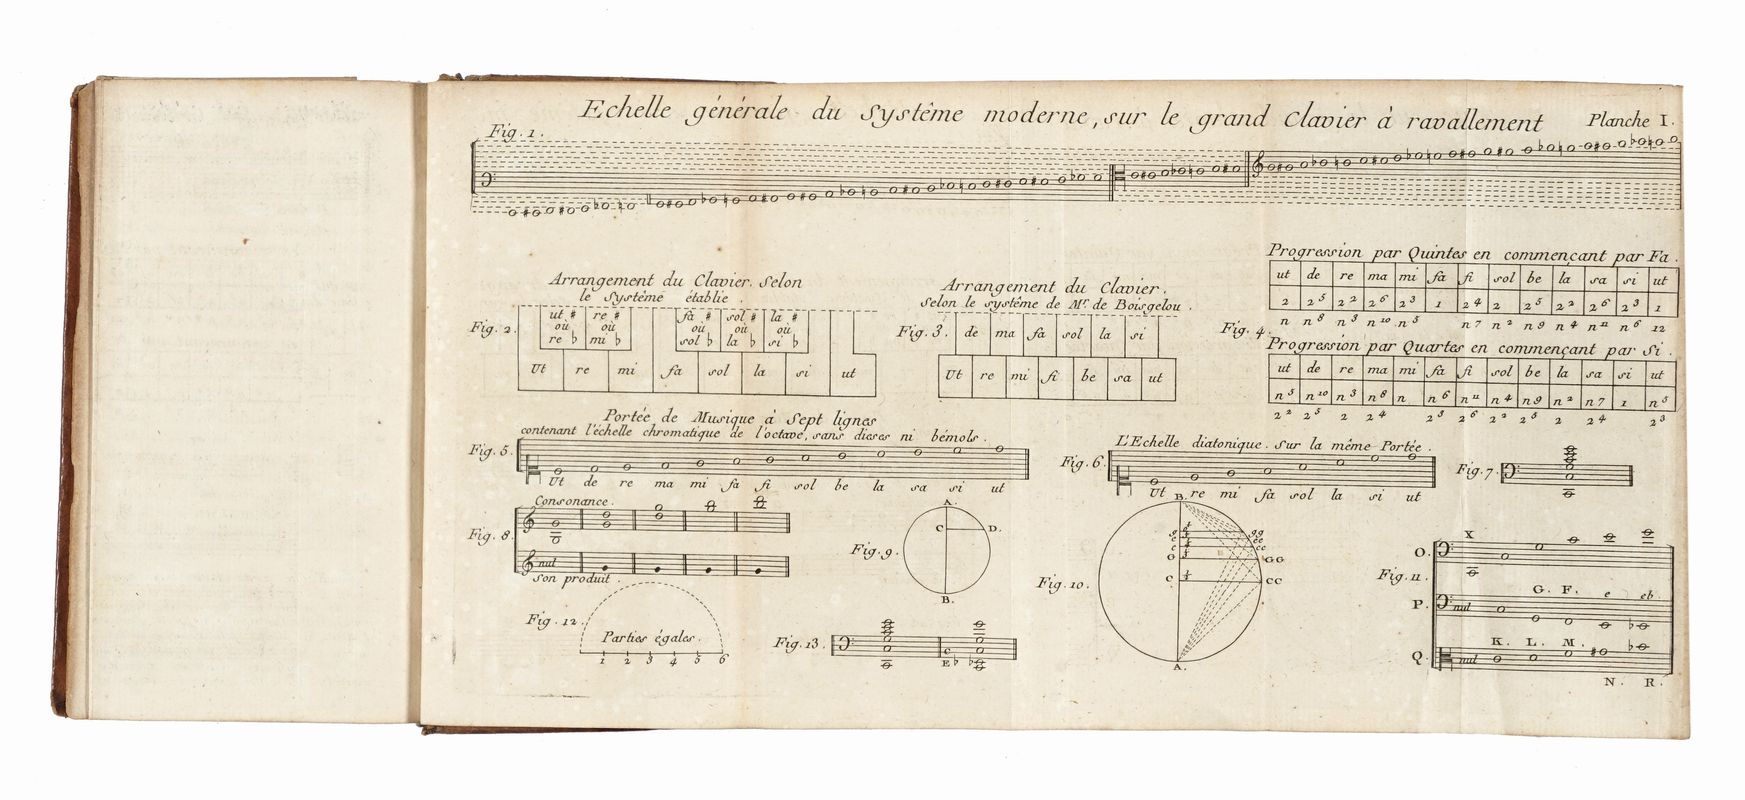 Echelle générale du Systême moderne, sur le grand Clavier à ravallement
Planche I.
Fig. 1.
Arrangement du Clavier. Selon
le Systême établie.
Fig. 2.
ut # re # fa # sol # la #
ou ou ou ou ou
re b mi b sol b la b si b
Ut re mi fa sol la si ut
Arrangement du Clavier.
Selon le systême de Mr. de Boisgelou.
Fig. 3.
de ma fa sol la si
Ut re mi fi be sa ut
Progression par Quintes en commençant par Fa.
Fig. 4.
ut de re ma mi fa fi sol be la sa si ut
2 2⁵ 2² 2⁶ 2³ 1 2⁴ 2 2⁵ 2² 2⁶ 2³ 1
n n⁸ n³ n¹⁰ n⁵ n⁷ n² n⁹ n⁴ n¹¹ n⁶ 12
Progression par Quartes en commençant par Si.
ut de re ma mi fa fi sol be la sa si ut
n⁵ n¹⁰ n³ n⁸ n n⁶ n¹¹ n⁴ n⁹ n² n⁷ 1 n⁵
2² 2⁵ 2 2⁴ 2³ 2⁶ 2² 2⁵ 2 2⁴ 2³
Portée de Musique à Sept lignes
contenant l'échelle chromatique de l'octave, sans dieses ni bémols.
Fig. 5.
Ut de re ma mi fa fi sol be la sa si ut
L'Echelle diatonique. Sur la même Portée.
Fig. 6.
Ut re mi fa sol la si ut
Fig. 7.
Consonance.
Fig. 8.
nul
Son produit.
Fig. 9.
A.
C D.
B.
Fig. 10.
B.
G GG
C CC
A.
Fig. 11.
X
O.
G. F. e eb.
P. nul
K. L. M.
Q. nul
N. R.
Fig. 12.
Parties égales.
1 2 3 4 5 6
Fig. 13.
C
E b